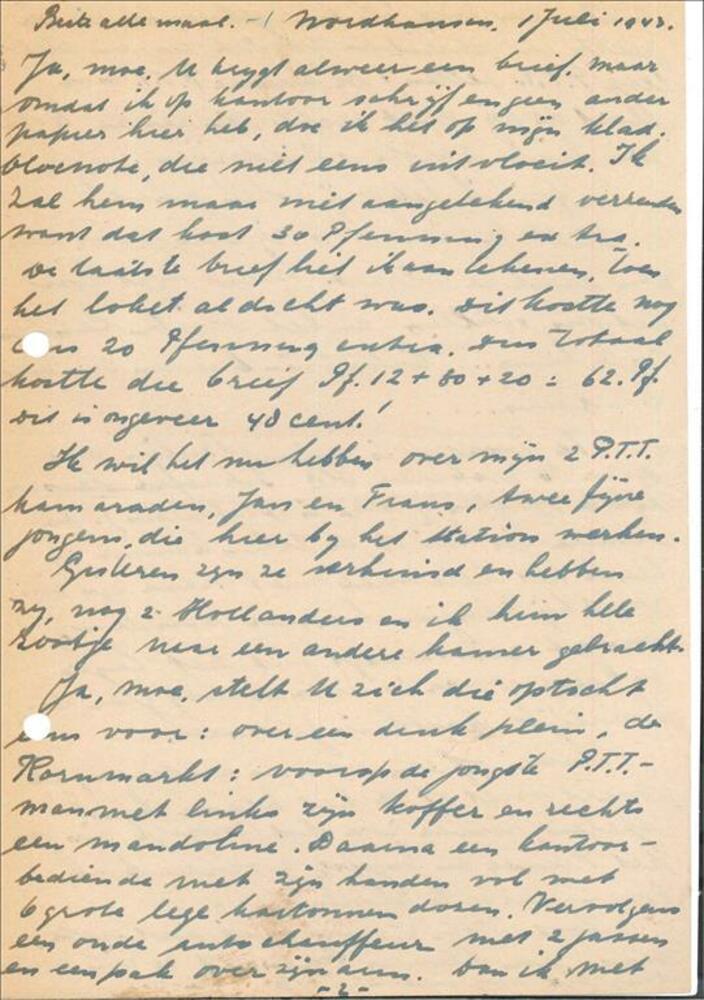 Beste alle maal. - 1 Nordhausen, 1 Juli 1943.
Ja, moe, U krygt alweer een brief, maar
omdat ik op kantoor schryf en geen ander
papier hier heb, doe ik het op mijn klad-
blocnote, die niet eens uitvloeit. Ik
zal hem maar niet aangetekend verzenden
want dat kost 30 Pfenning extra.
De laatste brief liet ik aantekenen, toen
het loket al dicht was. Dit kostte nog
eens 20 Pfenning extra. Dus totaal
kostte die brief Pf. 12 + 30 + 20 = 62. Pf.
Dit is ongeveer 48 cent!
Ik wil het nu hebben over mijn 2 P.T.T.
kamaraden, Jan en Frans, twee fijne
jongens, die hier by het station werken.
Gisteren zyn ze verhuisd en hebben
zy, nog 2 Hollanders en ik hun hele
zootje naar een andere kamer gebracht.
Ja, moe, stelt U zich die optocht
eens voor: over een druk plein, de
Kornmarkt: voorop de jongste P.T.T.-
man met links zijn koffer en rechts
een mandoline. Daarna een kantoor-
bediende met zijn handen vol met
6 grote lege kartonnen dozen. Vervolgens
een oude auto chauffeur met 2 jassen
en een pak over zijn arm. Dan ik, met
- 2 -